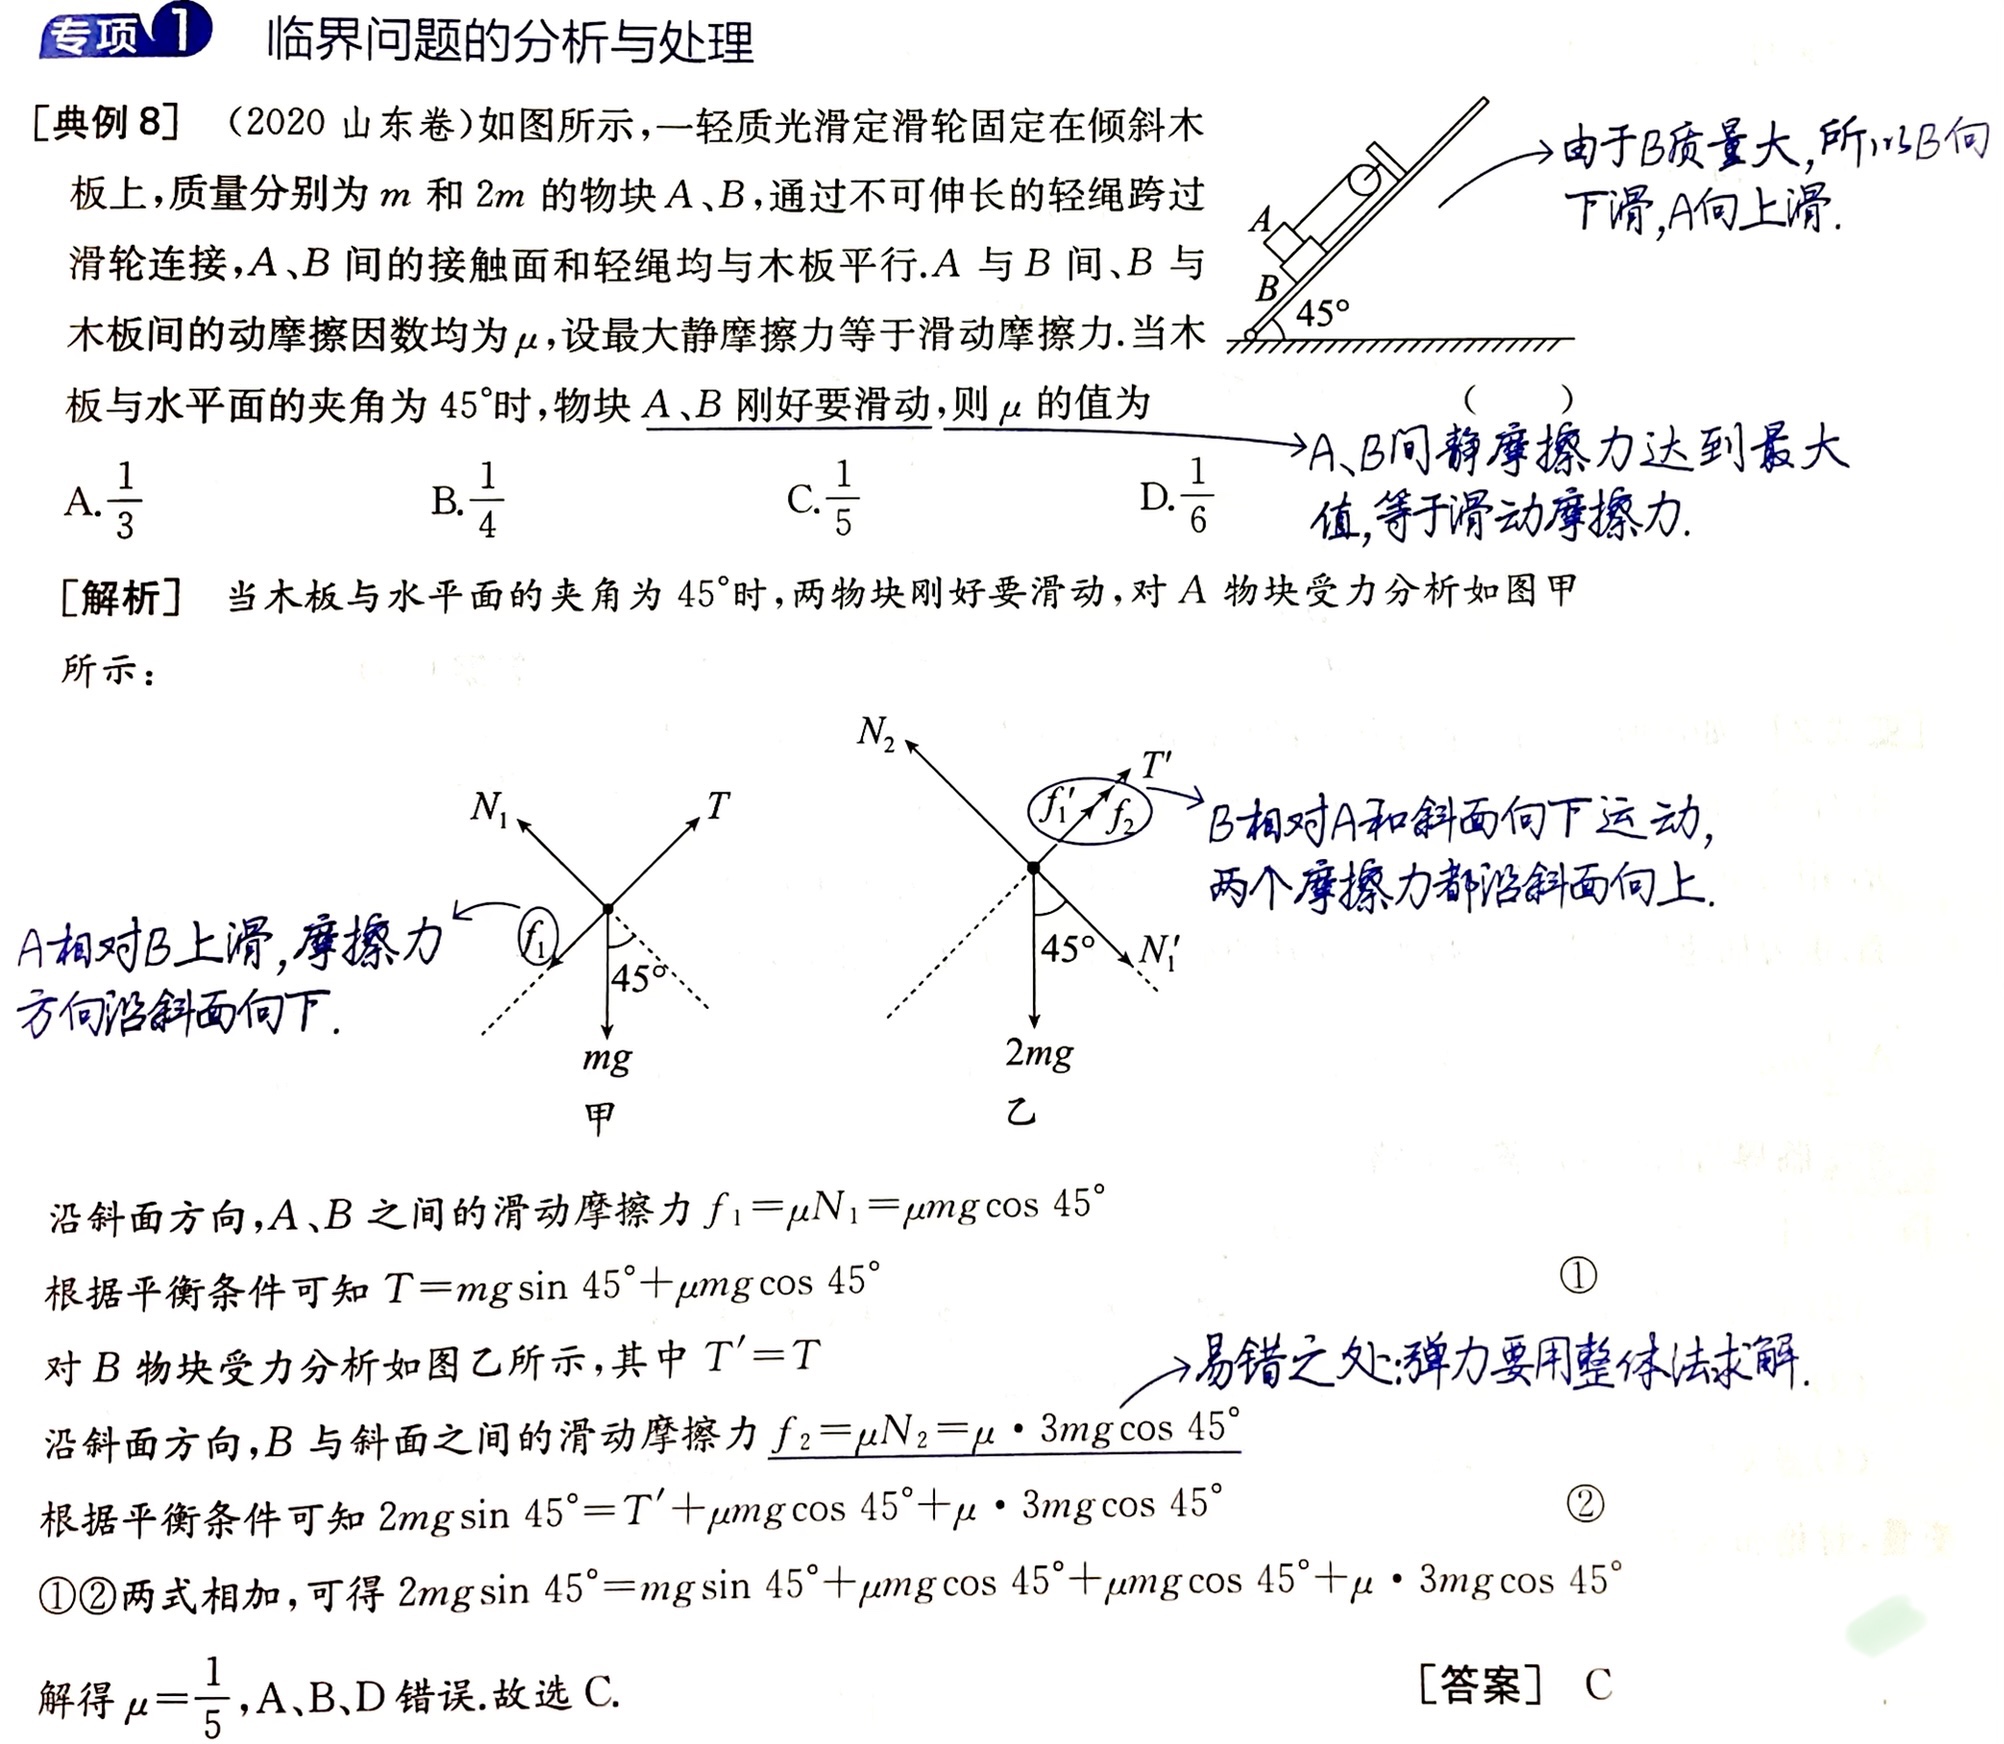 专项1 临界问题的分析与处理
[典例8] （2020 山东卷）如图所示，一轻质光滑定滑轮固定在倾斜木
板上，质量分别为 m 和 2m 的物块 A、B，通过不可伸长的轻绳跨过
滑轮连接，A、B 间的接触面和轻绳均与木板平行.A 与 B 间、B 与
木板间的动摩擦因数均为 μ，设最大静摩擦力等于滑动摩擦力.当木
板与水平面的夹角为 45°时，物块 A、B 刚好要滑动，则 μ 的值为 （ ）
A
B
45°
由于B质量大，所以B向
下滑，A向上滑.
A、B间静摩擦力达到最大
值，等于滑动摩擦力.
A. 1/3 B. 1/4 C. 1/5 D. 1/6
[解析] 当木板与水平面的夹角为 45°时，两物块刚好要滑动，对 A 物块受力分析如图甲
所示：
N₁ T
f₁
45°
mg
甲
A相对B上滑，摩擦力
方向沿斜面向下.
N₂ T′
f₁′ f₂
45° N₁′
2mg
乙
B相对A和斜面向下运动，
两个摩擦力都沿斜面向上.
沿斜面方向，A、B 之间的滑动摩擦力 f₁=μN₁=μmgcos 45°
根据平衡条件可知 T=mgsin 45°+μmgcos 45° ①
对 B 物块受力分析如图乙所示，其中 T′=T
易错之处：弹力要用整体法求解.
沿斜面方向，B 与斜面之间的滑动摩擦力 f₂=μN₂=μ·3mgcos 45°
根据平衡条件可知 2mgsin 45°=T′+μmgcos 45°+μ·3mgcos 45° ②
①②两式相加，可得 2mgsin 45°=mgsin 45°+μmgcos 45°+μmgcos 45°+μ·3mgcos 45°
解得 μ=1/5，A、B、D 错误.故选 C. [答案] C